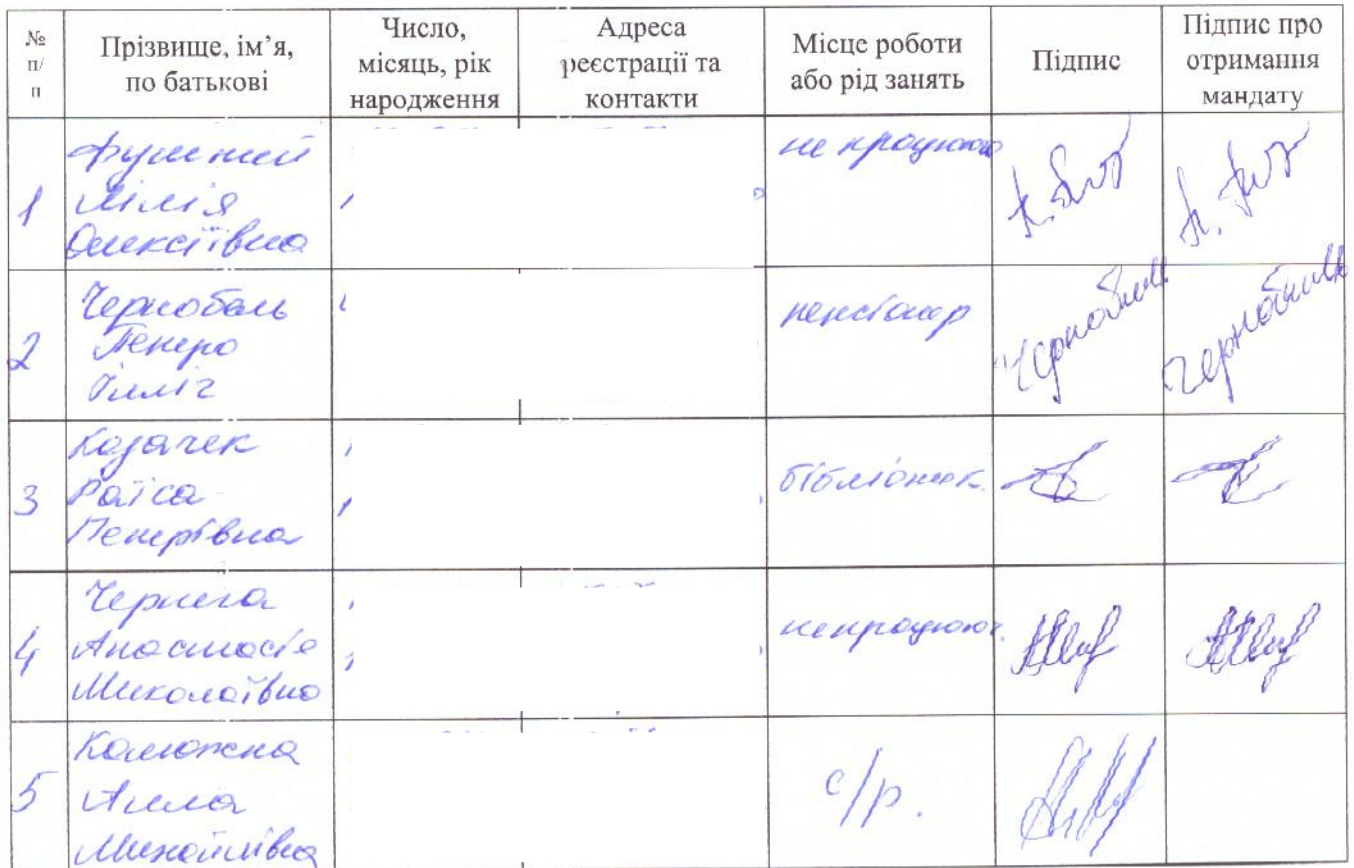 № п/п
Прізвище, ім’я, по батькові
Число, місяць, рік народження
Адреса реєстрації та контакти
Місце роботи або рід занять
Підпис
Підпис про отримання мандату
1
Лілія
Олексіївна
не працюю
2
Чернобаль
Петро
Ілліч
пенсіонер
3
Козачек
Раїса
Петрівна
бібліотек.
4
Чернега
Анастасія
Миколаївна
непрацююч.
5
Калюжна
Алла
Михайлівна
с/р.